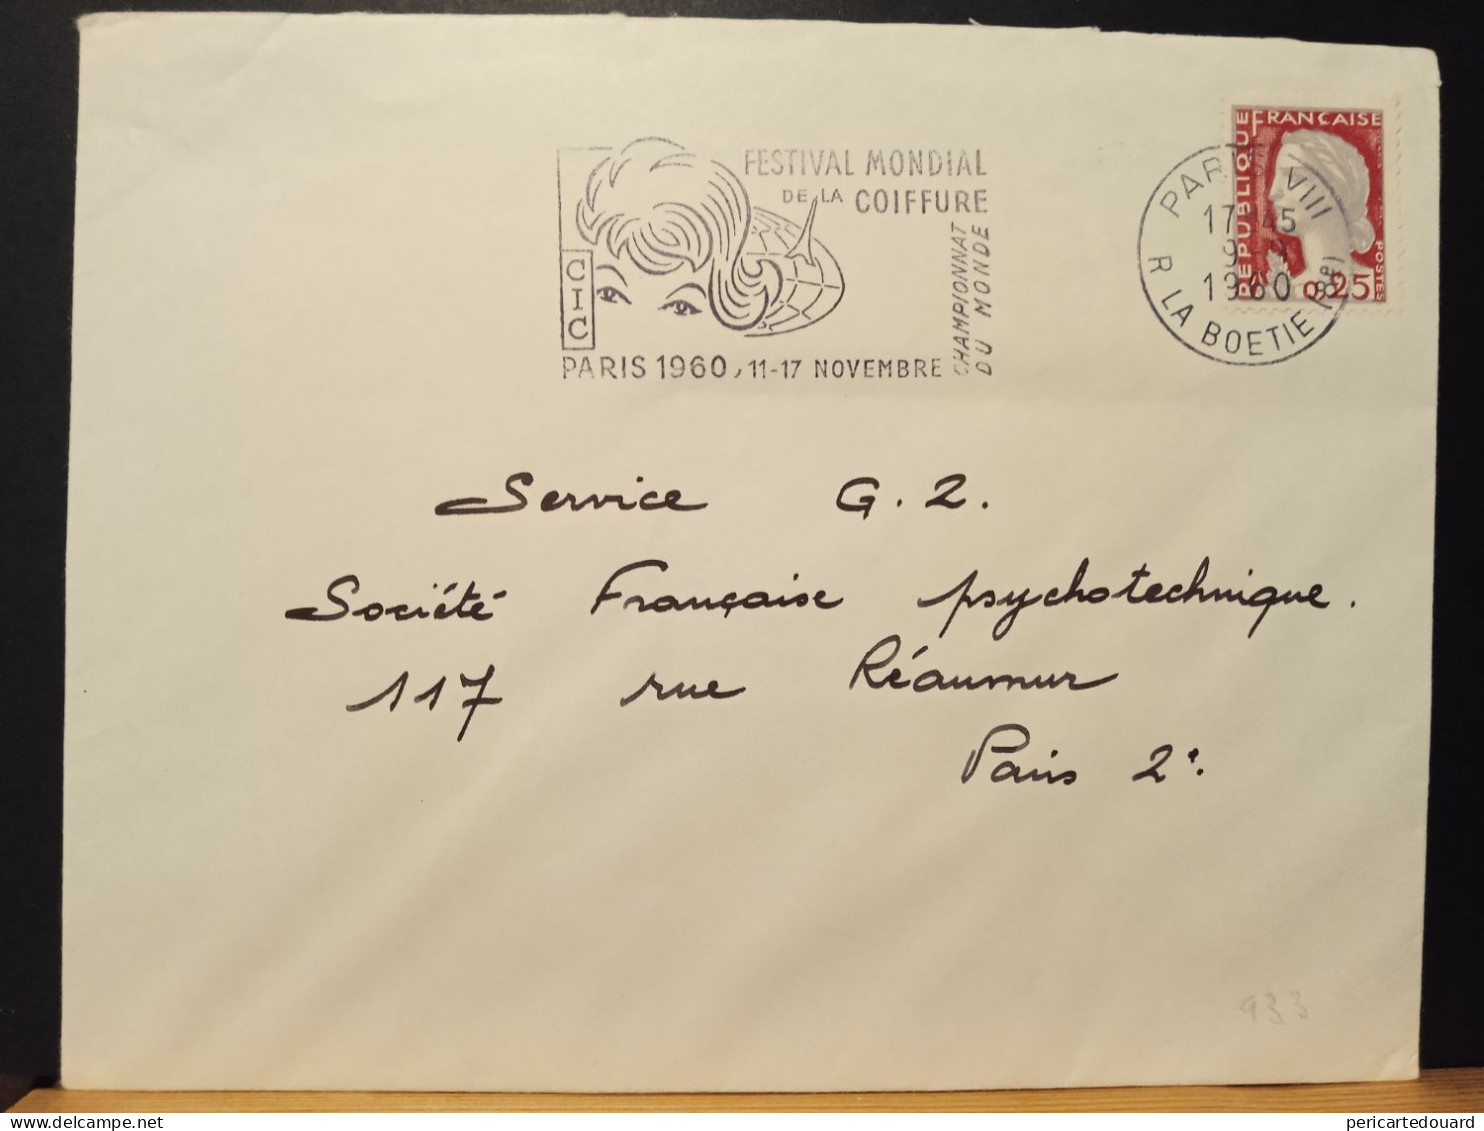 FESTIVAL MONDIAL
DE LA COIFFURE
CHAMPIONNAT
DU MONDE
CIC
PARIS 1960, 11-17 NOVEMBRE
RÉPUBLIQUE FRANÇAISE
POSTES
0,25
PARIS VIII
17 45
1960
R LA BOETIE
Service G.2.
Société Française psychotechnique.
117 rue Réaumur
Paris 2e.
933
pericartedouard